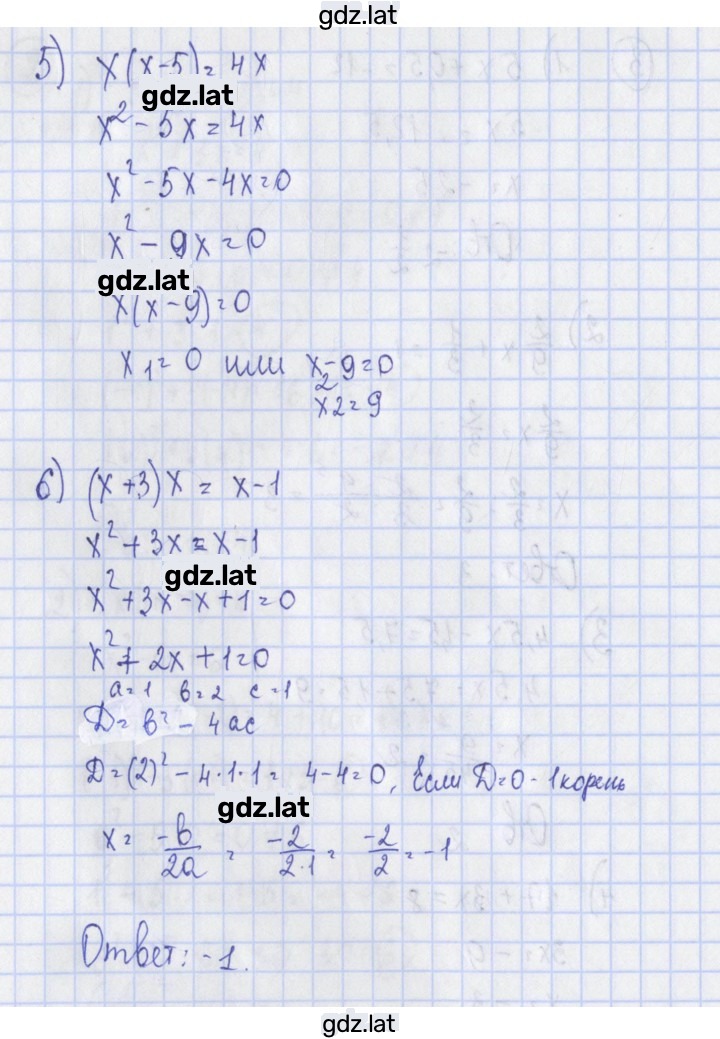 gdz.lat
5) x(x-5)=4x
gdz.lat
x²-5x=4x
x²-5x-4x=0
x²-9x=0
gdz.lat
x(x-9)=0
x₁=0 или x-9=0
2
x2=9
6) (x+3)x = x-1
x²+3x=x-1
gdz.lat
x²+3x-x+1=0
x²+2x+1=0
a=1 b=2 c=1
D=b²-4ac
D=(2)²-4·1·1= 4-4=0, Если D=0-1корень
gdz.lat
x= -b/2a = -2/2·1 = -2/2 = -1
Ответ: -1.
gdz.lat